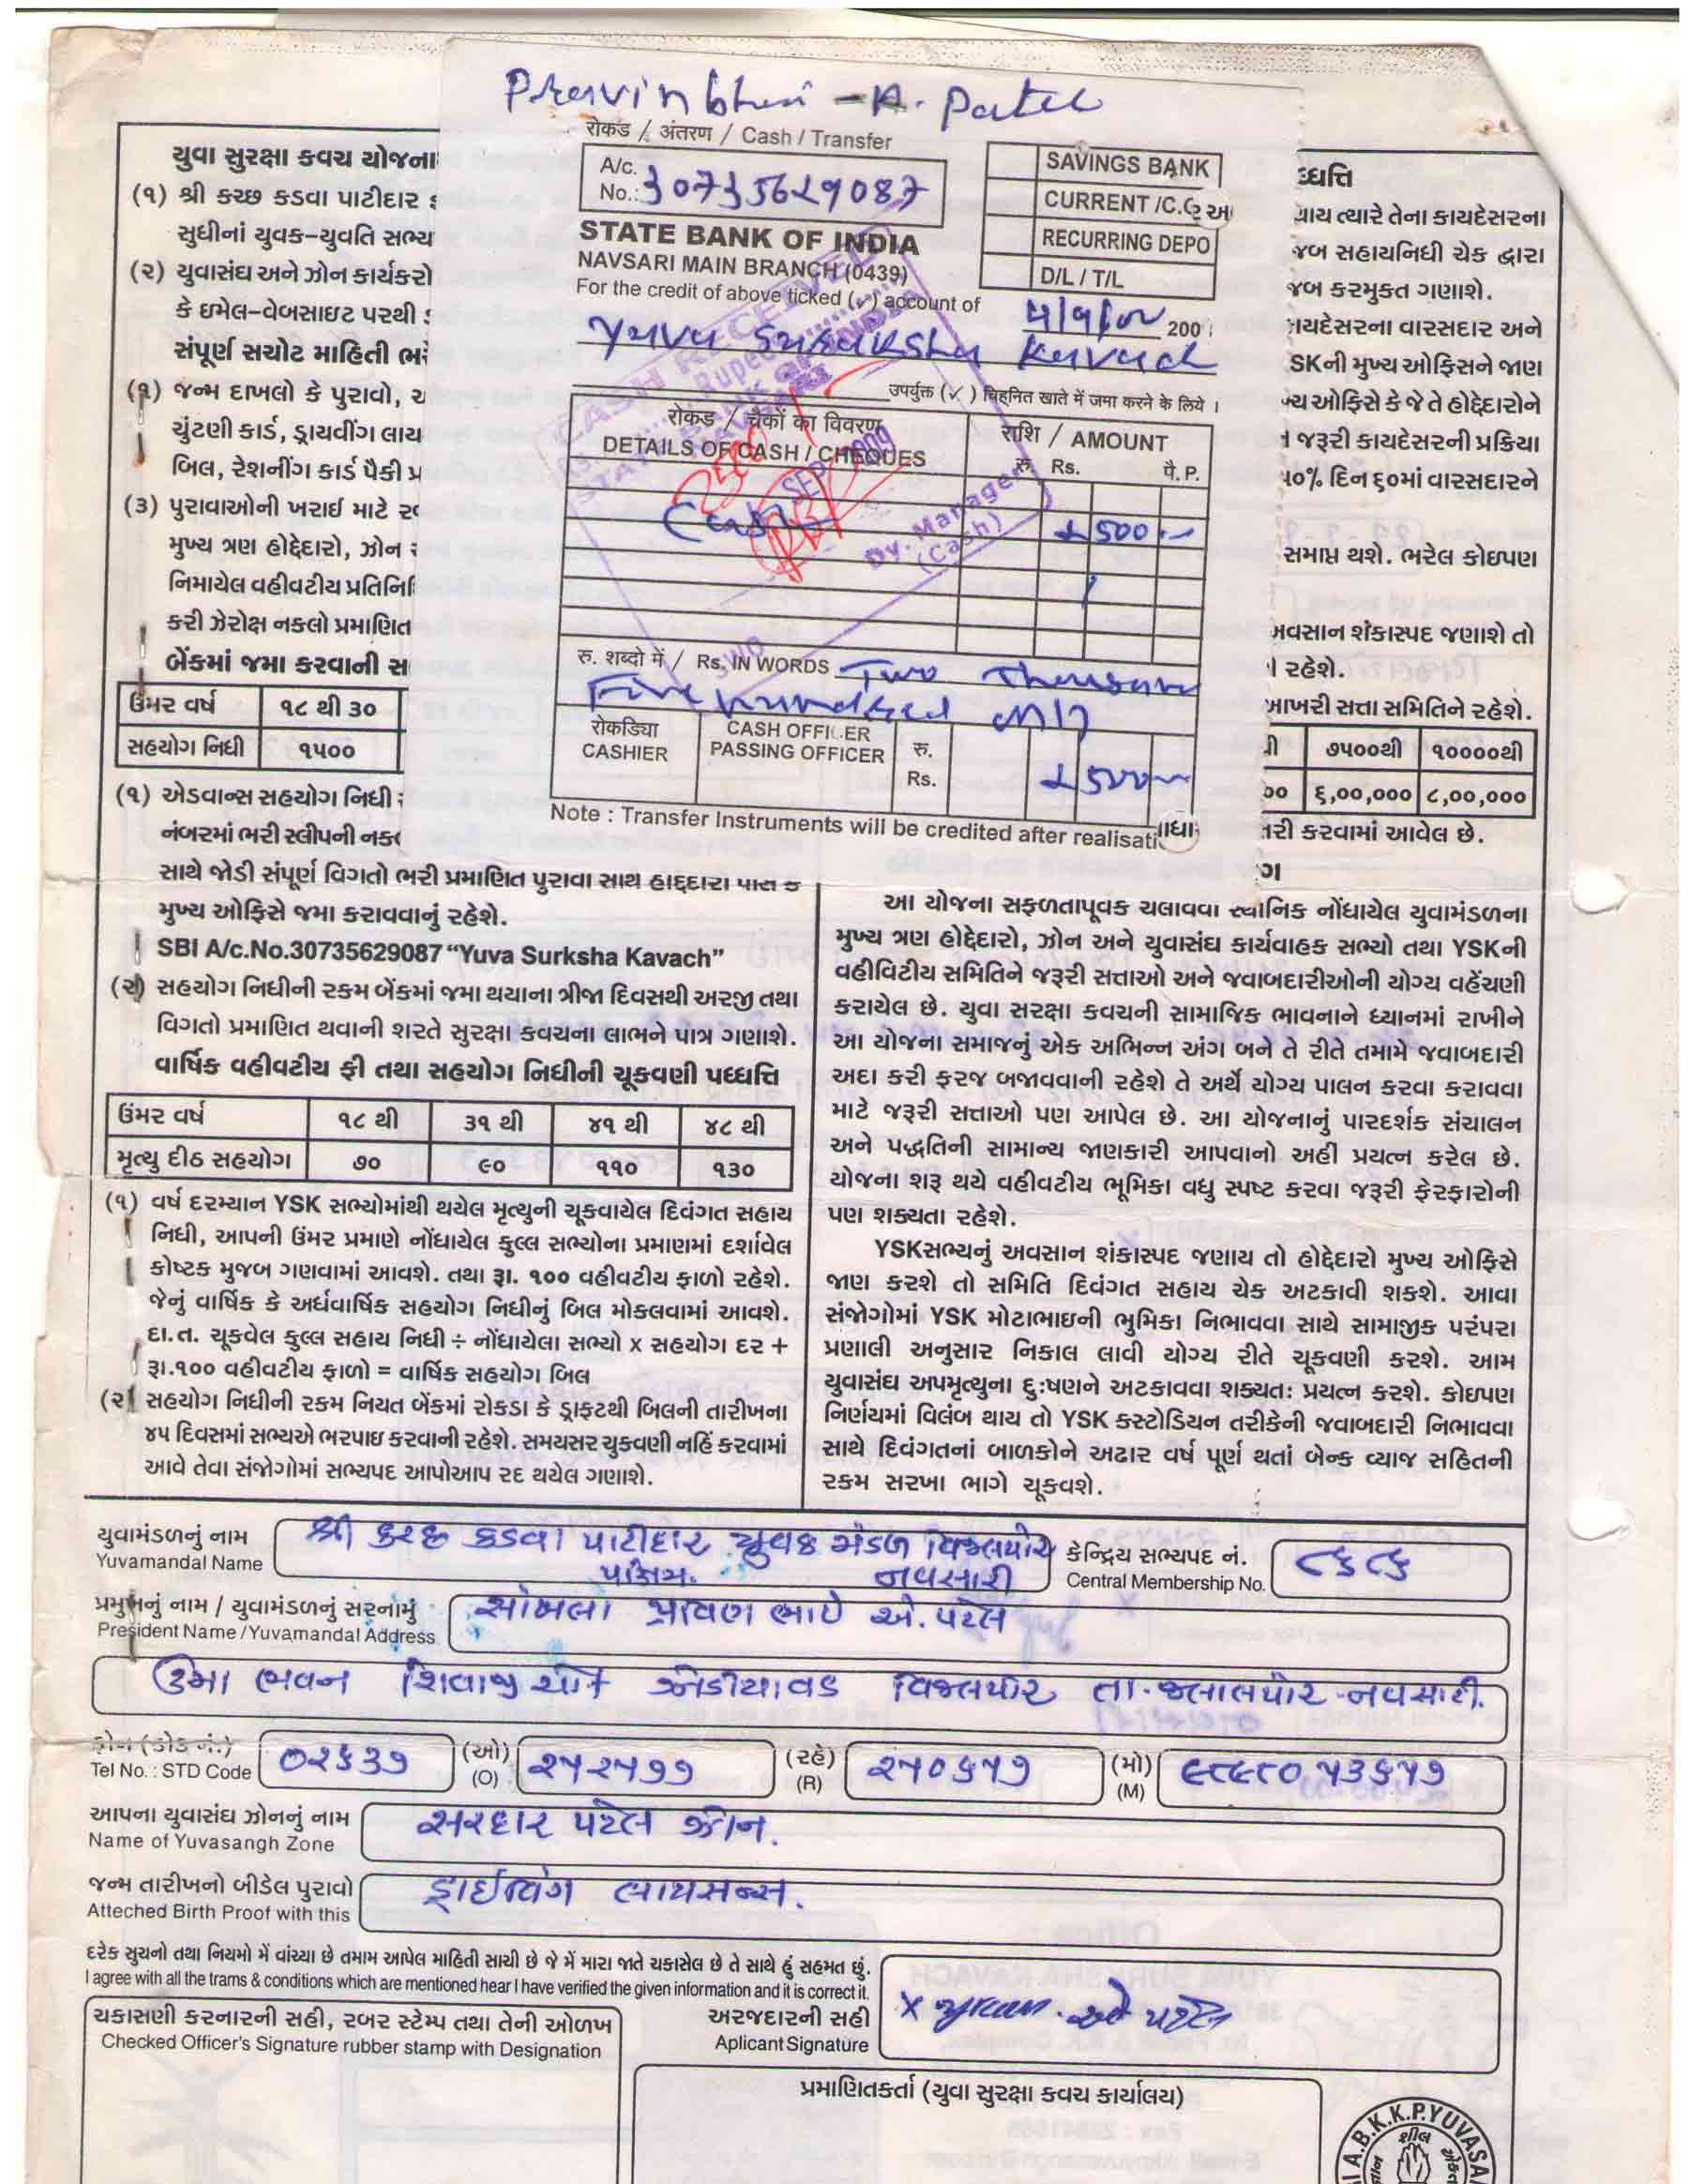 Pravinbhai - A. Patel
रोकड / अंतरण / Cash / Transfer
A/c. No.: 30735629087
SAVINGS BANK
CURRENT /C.C
RECURRING DEPO
D/L / T/L
STATE BANK OF INDIA
NAVSARI MAIN BRANCH (0439)
For the credit of above ticked (✓) account of
200
Yuva Suraksha Kavach
उपर्युक्त (✓) चिह्नित खाते में जमा करने के लिये ।
रोकड / चैकों का विवरण
DETAILS OF CASH / CHEQUES
राशि / AMOUNT
रु. Rs. पै. P.
2500
Cash 2500
Dy. Manager
(Cash)
SWO
रु. शब्दो में / Rs. IN WORDS Two Thousand
Five hundred only
रोकडिया
CASHIER
CASH OFFICER
PASSING OFFICER
रु.
Rs.
2500
Note : Transfer Instruments will be credited after realisati
યુવા સુરક્ષા કવચ યોજના
(૧) શ્રી કચ્છ કડવા પાટીદાર
સુધીનાં યુવક-યુવતિ સભ્ય
(૨) યુવાસંઘ અને ઝોન કાર્યકરો
કે ઇમેલ-વેબસાઇટ પરથી
સંપૂર્ણ સચોટ માહિતી ભરે
(૧) જન્મ દાખલો કે પુરાવો,
ચુંટણી કાર્ડ, ડ્રાયવીંગ લાય
બિલ, રેશનીંગ કાર્ડ પૈકી પ્ર
(૩) પુરાવાઓની ખરાઈ માટે
મુખ્ય ત્રણ હોદ્દેદારો, ઝોન
નિમાયેલ વહીવટીય પ્રતિનિ
કરી ઝેરોક્ષ નકલો પ્રમાણિત
બેંકમાં જમા કરવાની સ
ઉંમર વર્ષ ૧૮ થી ૩૦
સહયોગ નિધી ૧૫૦૦
(૧) એડવાન્સ સહયોગ નિધી
નંબરમાં ભરી સ્લીપની નક
સાથે જોડી સંપૂર્ણ વિગતો ભરી પ્રમાણિત પુરાવા સાથ હોદ્દેદારો પાસે કે
મુખ્ય ઓફિસે જમા કરાવવાનું રહેશે.
SBI A/c.No.30735629087 “Yuva Surksha Kavach”
(૨) સહયોગ નિધીની રકમ બેંકમાં જમા થયાના ત્રીજા દિવસથી અરજી તથા
વિગતો પ્રમાણિત થવાની શરતે સુરક્ષા કવચના લાભને પાત્ર ગણાશે.
વાર્ષિક વહીવટીય ફી તથા સહયોગ નિધીની ચૂકવણી પધ્ધત્તિ
ઉંમર વર્ષ ૧૮ થી ૩૧ થી ૪૧ થી ૪૮ થી
મૃત્યુ દીઠ સહયોગ ૭૦ ૯૦ ૧૧૦ ૧૩૦
(૧) વર્ષ દરમ્યાન YSK સભ્યોમાંથી થયેલ મૃત્યુની ચૂકવાયેલ દિવંગત સહાય
નિધી, આપની ઉંમર પ્રમાણે નોંધાયેલ કુલ્લ સભ્યોના પ્રમાણમાં દર્શાવેલ
કોષ્ટક મુજબ ગણવામાં આવશે. તથા રૂા. ૧૦૦ વહીવટીય ફાળો રહેશે.
જેનું વાર્ષિક કે અર્ધવાર્ષિક સહયોગ નિધીનું બિલ મોકલવામાં આવશે.
દા.ત. ચૂકવેલ કુલ્લ સહાય નિધી ÷ નોંધાયેલા સભ્યો x સહયોગ દર +
રૂા.૧૦૦ વહીવટીય ફાળો = વાર્ષિક સહયોગ બિલ
(૨) સહયોગ નિધીની રકમ નિયત બેંકમાં રોકડા કે ડ્રાફટથી બિલની તારીખના
૪૫ દિવસમાં સભ્યએ ભરપાઇ કરવાની રહેશે. સમયસર ચુકવણી નહિં કરવામાં
આવે તેવા સંજોગોમાં સભ્યપદ આપોઆપ રદ થયેલ ગણાશે.
ધ્ધત્તિ
થાય ત્યારે તેના કાયદેસરના
જબ સહાયનિધી ચેક દ્વારા
જબ કરમુક્ત ગણાશે.
ાયદેસરના વારસદાર અને
SKની મુખ્ય ઓફિસને જાણ
ખ્ય ઓફિસે કે જે તે હોદ્દેદારોને
જરૂરી કાયદેસરની પ્રક્રિયા
૫૦% દિન ૬૦માં વારસદારને
સમાપ્ત થશે. ભરેલ કોઇપણ
અવસાન શંકાસ્પદ જણાશે તો
રહેશે.
આખરી સત્તા સમિતિને રહેશે.
૭૫૦૦થી ૧૦૦૦૦થી
૦૦ ૬,૦૦,૦૦૦ ૮,૦૦,૦૦૦
તરી કરવામાં આવેલ છે.
ગ
આ યોજના સફળતાપૂવક ચલાવવા સ્થાનિક નોંધાયેલ યુવામંડળના
મુખ્ય ત્રણ હોદ્દેદારો, ઝોન અને યુવાસંઘ કાર્યવાહક સભ્યો તથા YSKની
વહીવિટીય સમિતિને જરૂરી સત્તાઓ અને જવાબદારીઓની યોગ્ય વહેંચણી
કરાયેલ છે. યુવા સરક્ષા કવચની સામાજિક ભાવનાને ધ્યાનમાં રાખીને
આ યોજના સમાજનું એક અભિન્ન અંગ બને તે રીતે તમામે જવાબદારી
અદા કરી ફરજ બજાવવાની રહેશે તે અર્થે યોગ્ય પાલન કરવા કરાવવા
માટે જરૂરી સત્તાઓ પણ આપેલ છે. આ યોજનાનું પારદર્શક સંચાલન
અને પદ્ધતિની સામાન્ય જાણકારી આપવાનો અહીં પ્રયત્ન કરેલ છે.
યોજના શરૂ થયે વહીવટીય ભૂમિકા વધુ સ્પષ્ટ કરવા જરૂરી ફેરફારોની
પણ શક્યતા રહેશે.
YSKસભ્યનું અવસાન શંકાસ્પદ જણાય તો હોદ્દેદારો મુખ્ય ઓફિસે
જાણ કરશે તો સમિતિ દિવંગત સહાય ચેક અટકાવી શકશે. આવા
સંજોગોમાં YSK મોટાભાઇની ભુમિકા નિભાવવા સાથે સામાજીક પરંપરા
પ્રણાલી અનુસાર નિકાલ લાવી યોગ્ય રીતે ચૂકવણી કરશે. આમ
યુવાસંઘ અપમૃત્યુના દુઃષણને અટકાવવા શક્યતઃ પ્રયત્ન કરશે. કોઇપણ
નિર્ણયમાં વિલંબ થાય તો YSK કસ્ટોડિયન તરીકેની જવાબદારી નિભાવવા
સાથે દિવંગતનાં બાળકોને અઢાર વર્ષ પૂર્ણ થતાં બેન્ક વ્યાજ સહિતની
રકમ સરખા ભાગે ચૂકવશે.
યુવામંડળનું નામ
Yuvamandal Name
શ્રી કચ્છ કડવા પાટીદાર યુવક મંડળ વિજલપોર
પશ્ચિમ. નવસારી
કેન્દ્રિય સભ્યપદ નં.
Central Membership No.
૮૬૮૬
પ્રમુખનું નામ / યુવામંડળનું સરનામું
President Name /Yuvamandal Address
પ્રવિણ ભાઈ એ. પટેલ
ઉમા ભવન શિવાજી ચોક વિજલપોર તા. જલાલપોર નવસારી.
ફોન (કોડ નં.)
Tel No. : STD Code
૦૨૬૩૭
(ઓ)
(O)
૨૫૨૫૧૧
(રહે)
(R)
૨૫૦૬૫૭
(મો)
(M)
૯૮૯૮૦૫૩૬૫૭
આપના યુવાસંઘ ઝોનનું નામ
Name of Yuvasangh Zone
સરદાર પટેલ ઝોન.
જન્મ તારીખનો બીડેલ પુરાવો
Atteched Birth Proof with this
ડ્રાઈવિંગ લાયસન્સ.
દરેક સુચનો તથા નિયમો મેં વાંચ્યા છે તમામ આપેલ માહિતી સાચી છે જે મેં મારા જાતે ચકાસેલ છે તે સાથે હું સહમત છું.
I agree with all the trams & conditions which are mentioned hear I have verified the given information and it is correct it.
ચકાસણી કરનારની સહી, રબર સ્ટેમ્પ તથા તેની ઓળખ
Checked Officer's Signature rubber stamp with Designation
અરજદારની સહી
Aplicant Signature
પ્રમાણિતકર્તા (યુવા સુરક્ષા કવચ કાર્યાલય)
A.B.K.K.P.YUVASA
શીલ